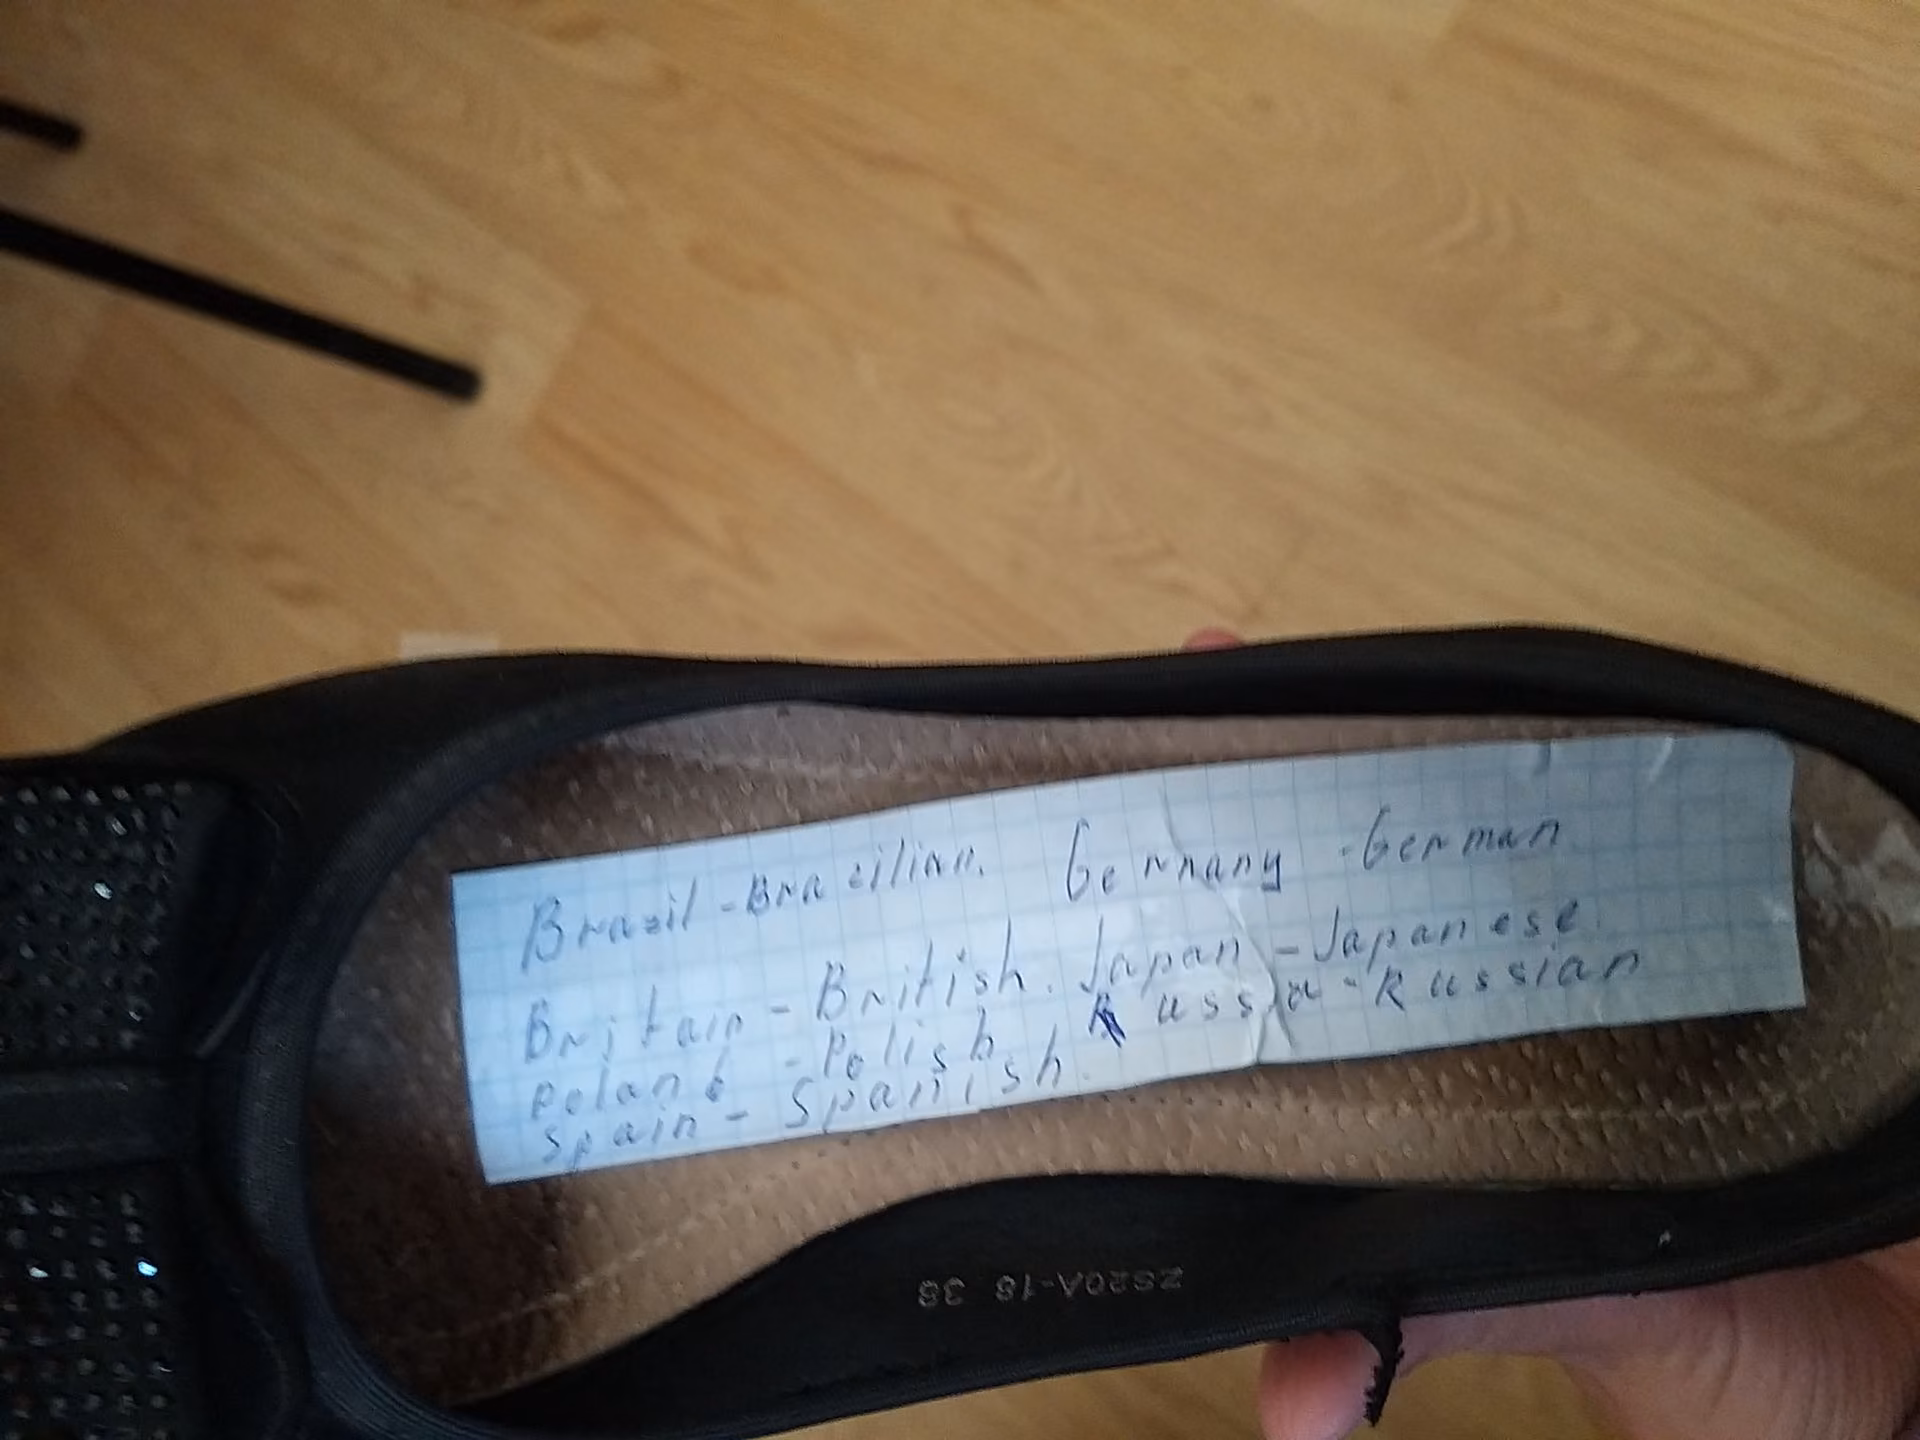 Brazil - Brazilian. Germany - German
Britain - British. Japan - Japanese.
Poland - Polish Russia - Russian
Spain - Spanish.
ZS20A-16 38